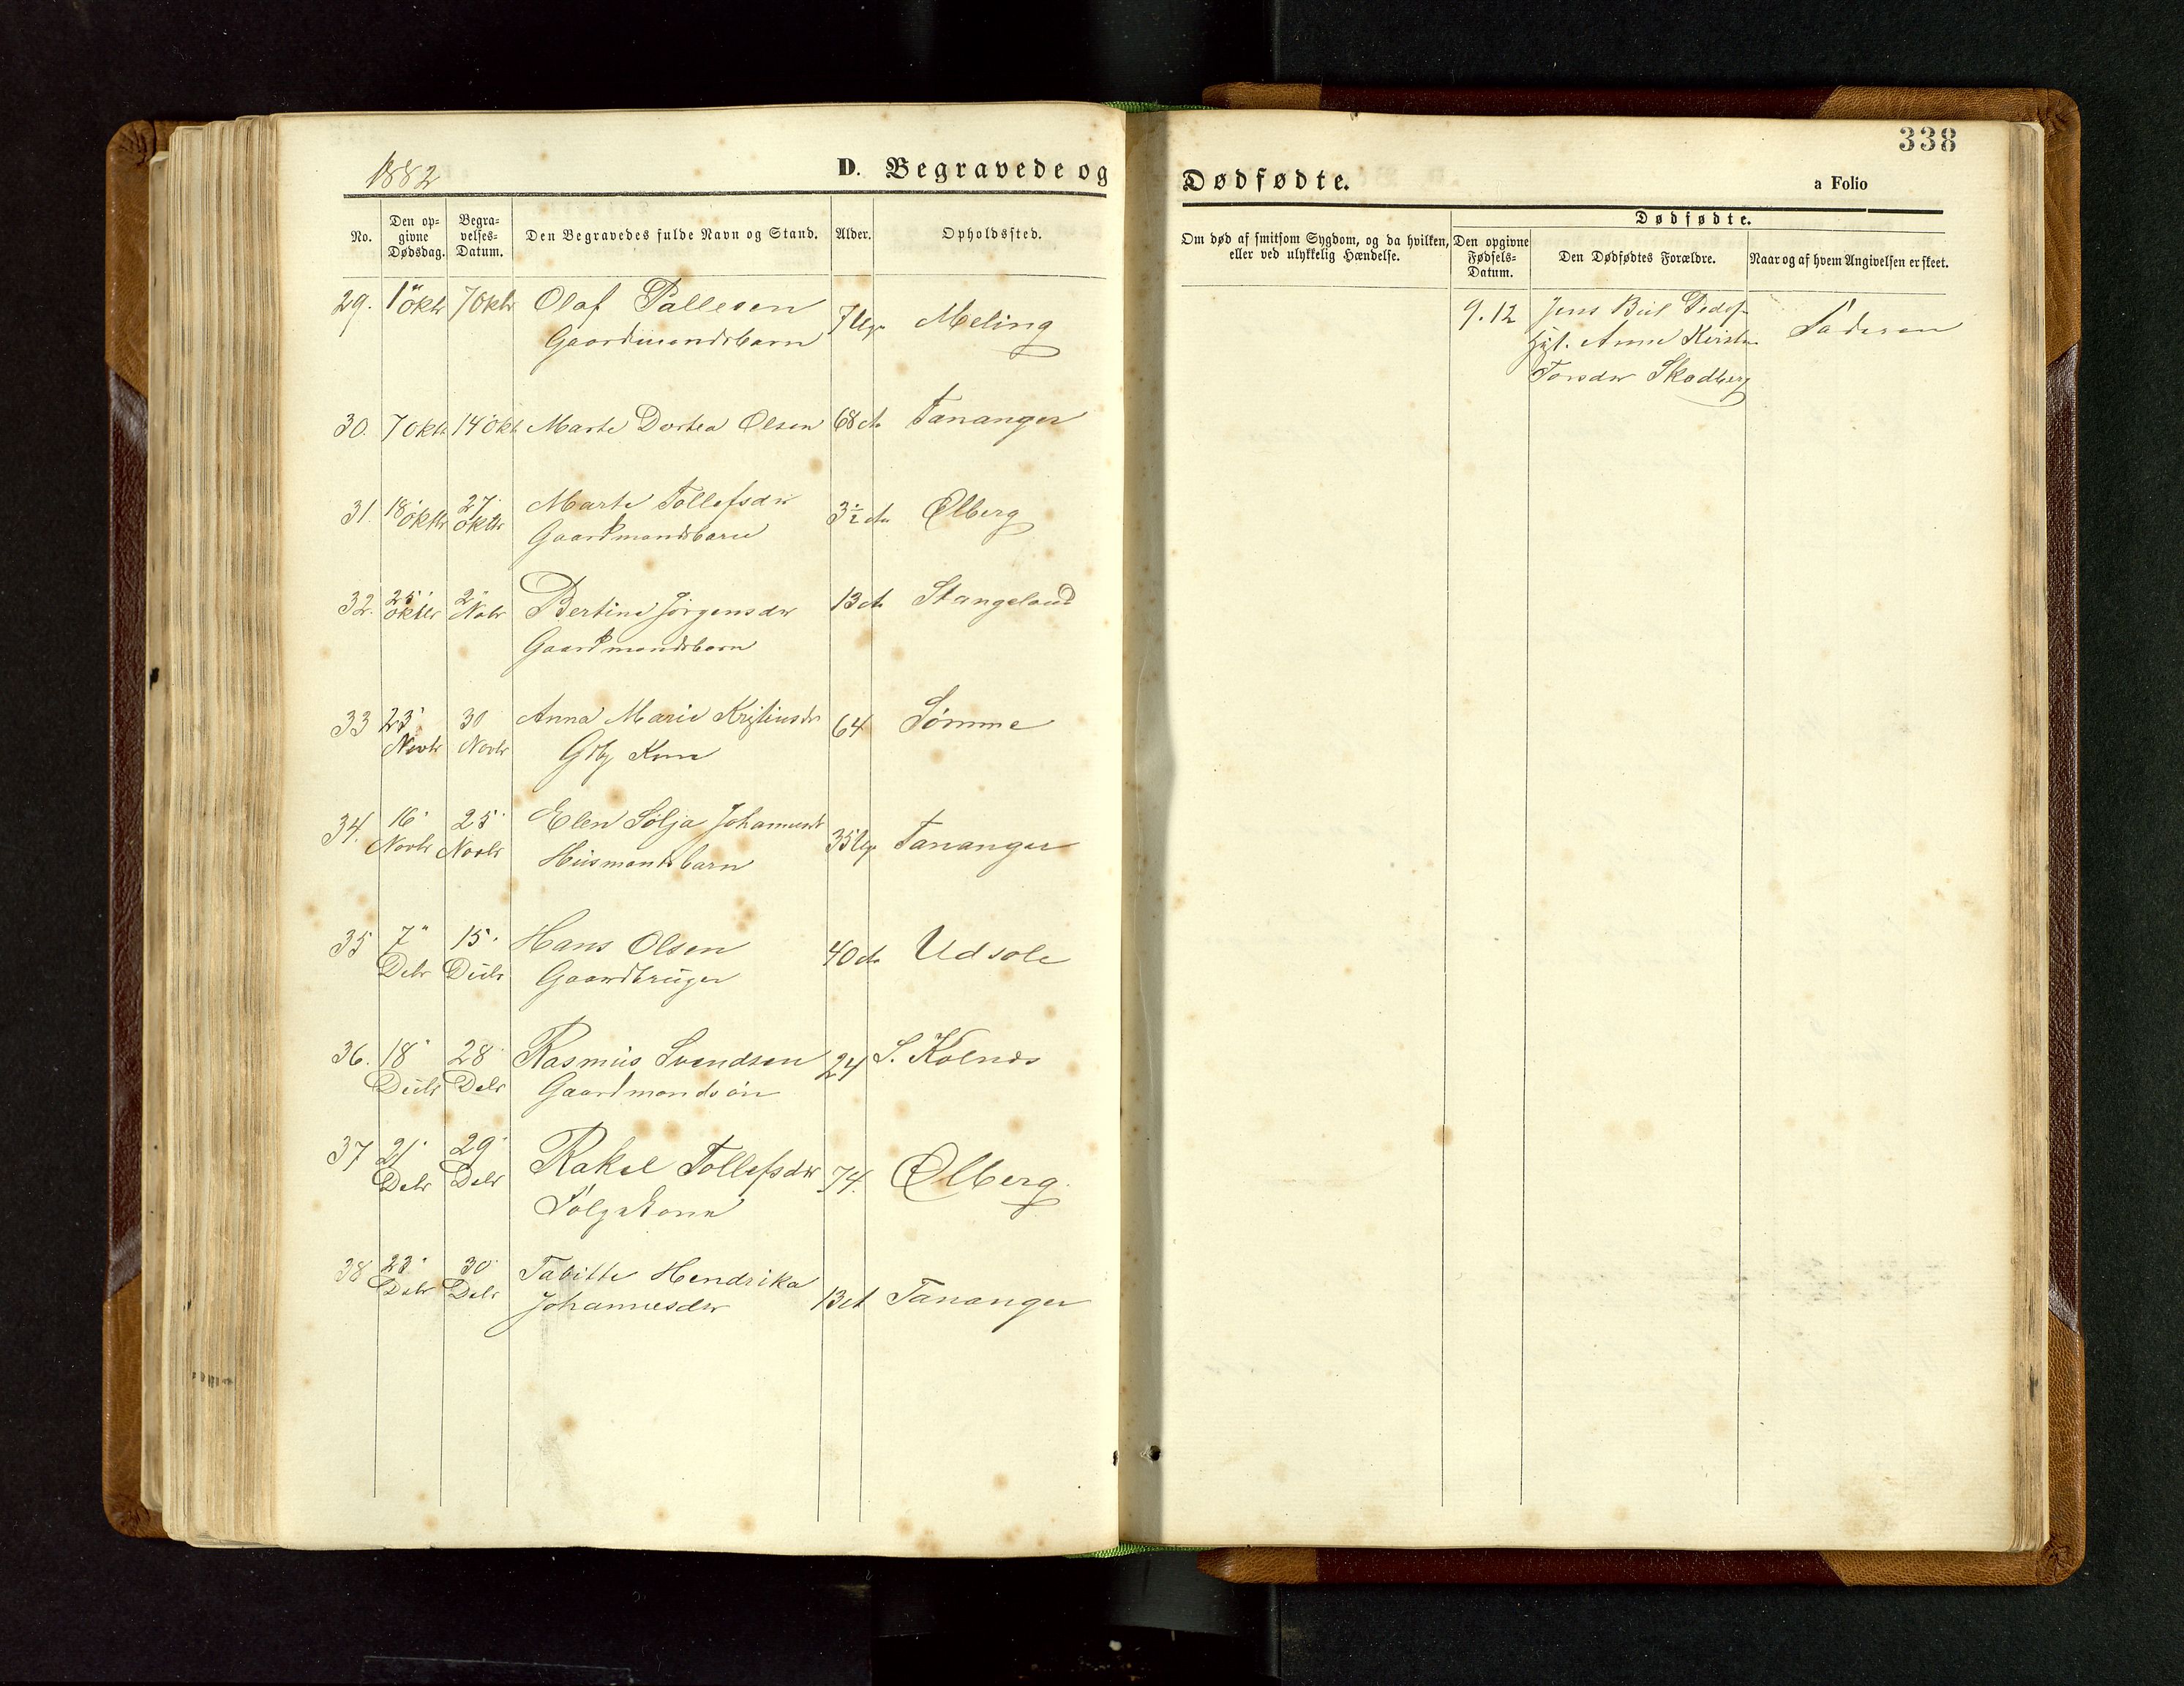 1882
D. Begravede og
No.
Den op-
givne
Dødsdag.
Begra-
velses-
Datum.
Den Begravedes fulde Navn og Stand.
Alder.
Opholdssted.
29. 1" Oktr 7 Oktr Olaf Pallesen 7 Uger Meling
Gaardmandsbarn
30. 7 Oktr 14 Oktr Marte Dortea Olsen 68 Tananger
31. 18 27 Marte Tollefsdr 3½ Ølberg
Oktbr Oktbr Gaardmandsbarn
32. 25 2" Bertine Jørgensdr 13 Stangeland
Oktbr Nobr
Gaardmandsbarn
33 23 30 Anna Marie 64 Sömme
Novbr Novbr Gbg Kone
34. 16 25 Elen Silja Johannesdr 35 Uger Tananger
Novbr Novbr Husmandsbarn
35 7" 15. Hans Olsen 40 Udsole
Debr Debr Gaardbruger
36. 18 28 Rasmus Svendsen 24 S. Kolnes
Debr Debr Gaardmandsøn
37 21 29 Rakel Tollefsdr 74. Ølberg.
Debr Debr Følgekone
38 23 30 Tabitte Hendrika
Debr Debr Johannesdr 13 Tananger
338
Dødfødte.
a Folio
Om død af smitsom Sygdom, og da hvilken,
eller ved ulykkelig Hændelse.
Dødfødte.
Den opgivne
Fødsels-
Datum.
Den Dødfødtes Forældre.
Naar og af hvem Angivelsen er skeet.
9.12 Jens
Anne Faderen
Skadberg